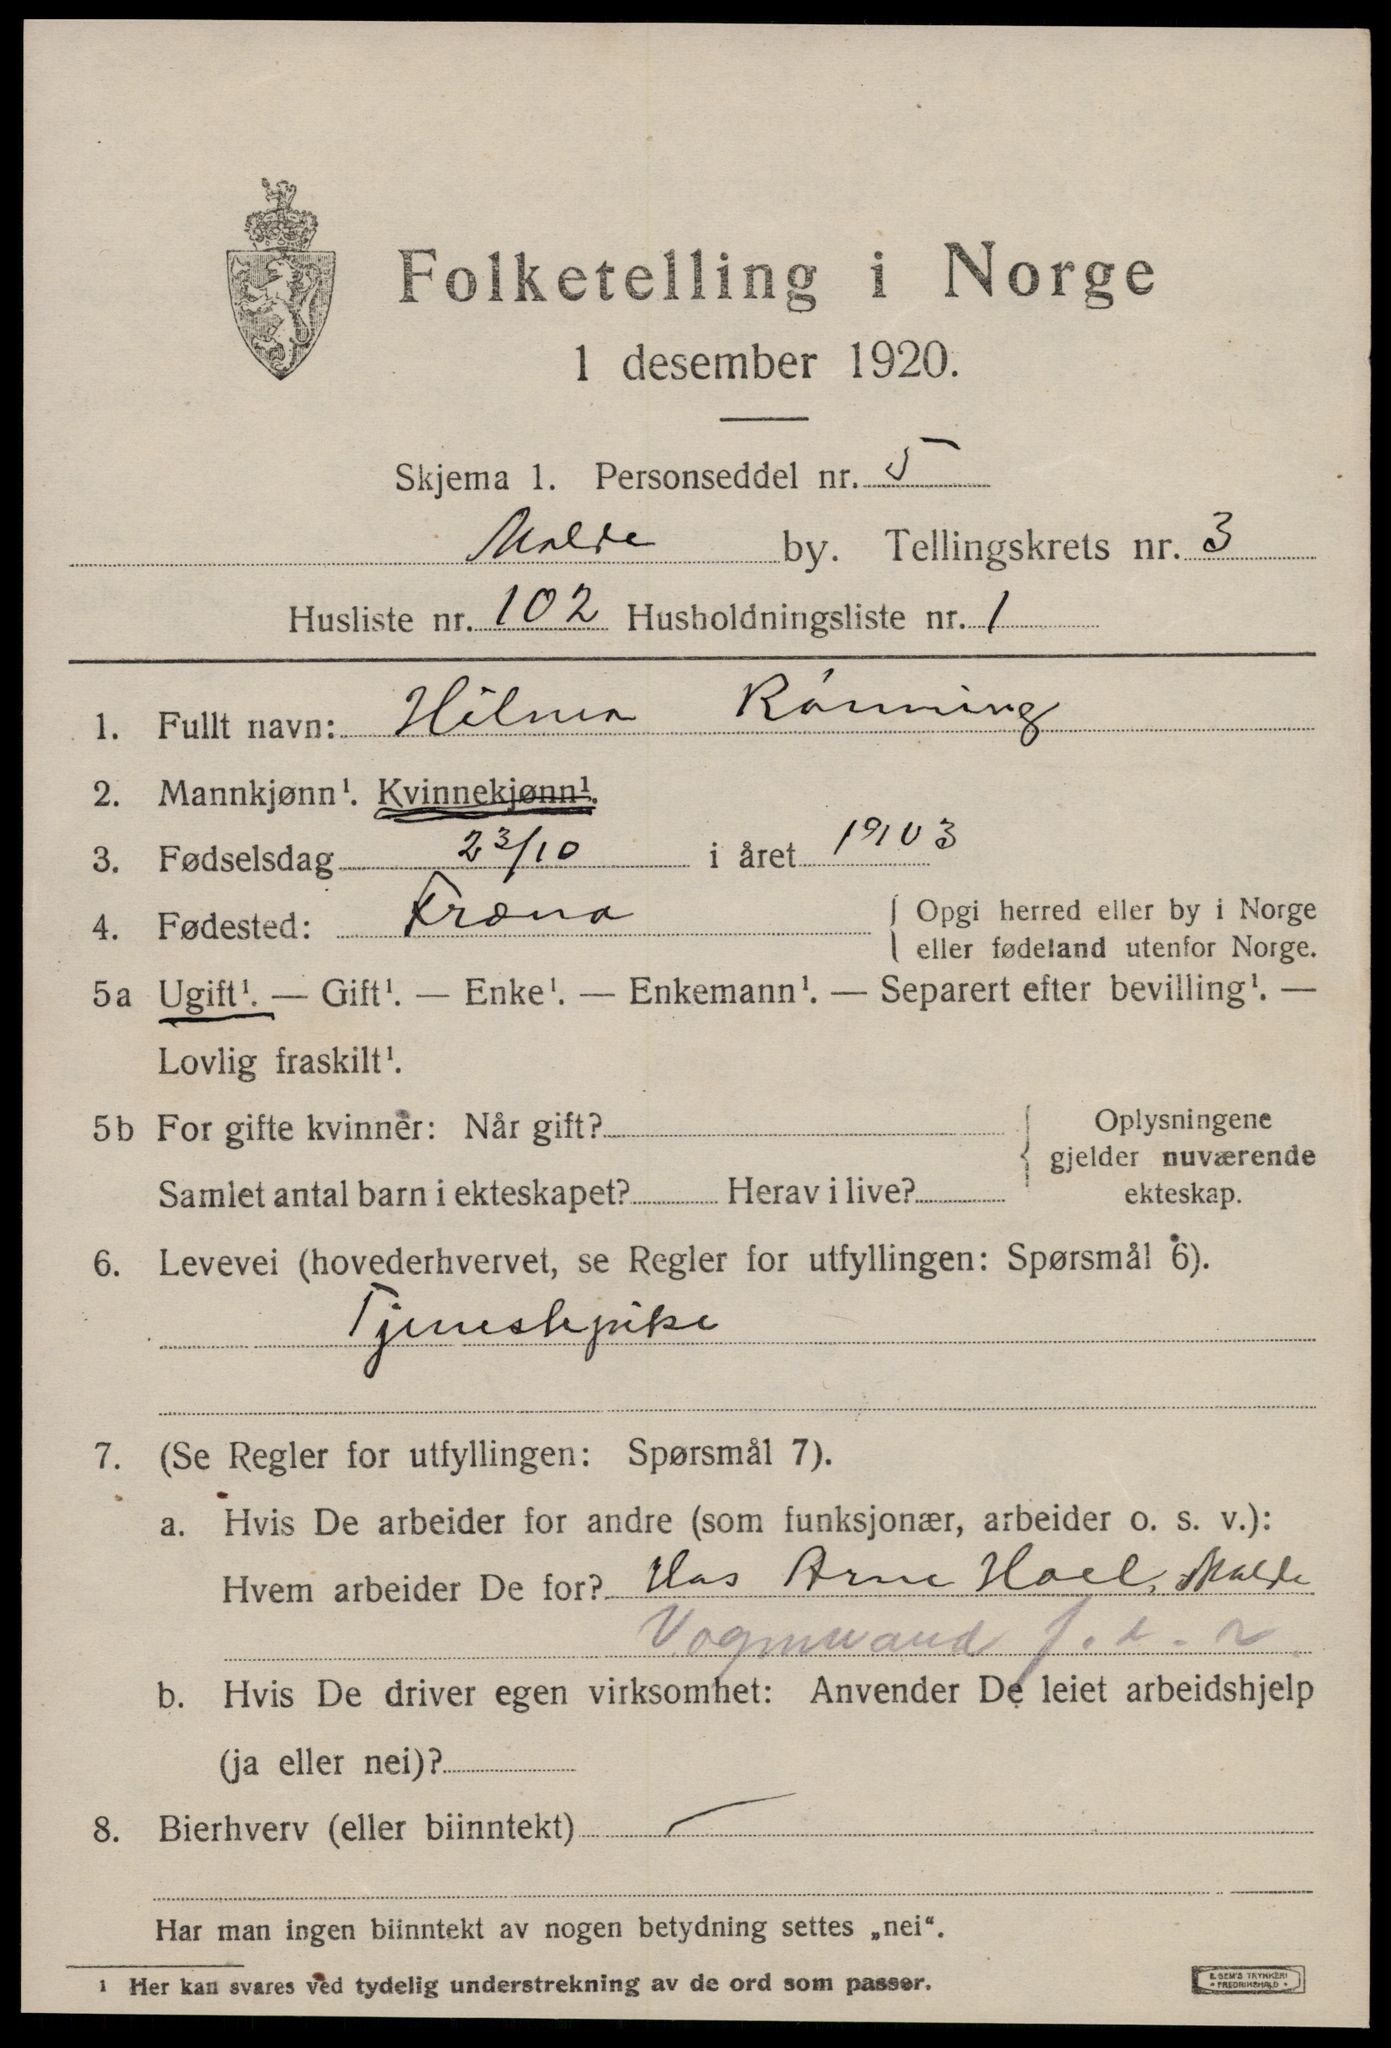 Folketelling i Norge
1 desember 1920.
Skjema 1. Personseddel nr. 5
Molde by. Tellingskrets nr. 3
Husliste nr. 102 Husholdningsliste nr. 1
1. Fullt navn: Hilma Rønning
2. Mannkjønn¹. Kvinnekjønn¹.
3. Fødselsdag 23/10 i året 1903
4. Fødested: Fræna { Opgi herred eller by i Norge
eller fødeland utenfor Norge.
5a Ugift¹. — Gift¹. — Enke¹. — Enkemann¹. — Separert efter bevilling¹. —
Lovlig fraskilt¹.
5b For gifte kvinner: Når gift? { Oplysningene
gjelder nuværende
Samlet antal barn i ekteskapet? Herav i live? ekteskap.
6. Levevei (hovederhvervet, se Regler for utfyllingen: Spørsmål 6).
Tjenestepike
7. (Se Regler for utfyllingen: Spørsmål 7).
a. Hvis De arbeider for andre (som funksjonær, arbeider o. s. v.):
Hvem arbeider De for? Hos Arne Hoel, Molde
Vognmand
b. Hvis De driver egen virksomhet: Anvender De leiet arbeidshjelp
(ja eller nei)?
8. Bierhverv (eller biinntekt) —
Har man ingen biinntekt av nogen betydning settes „nei“.
¹ Her kan svares ved tydelig understrekning av de ord som passer.
E. SEM'S TRYKKERI
• FREDRIKSHALD •